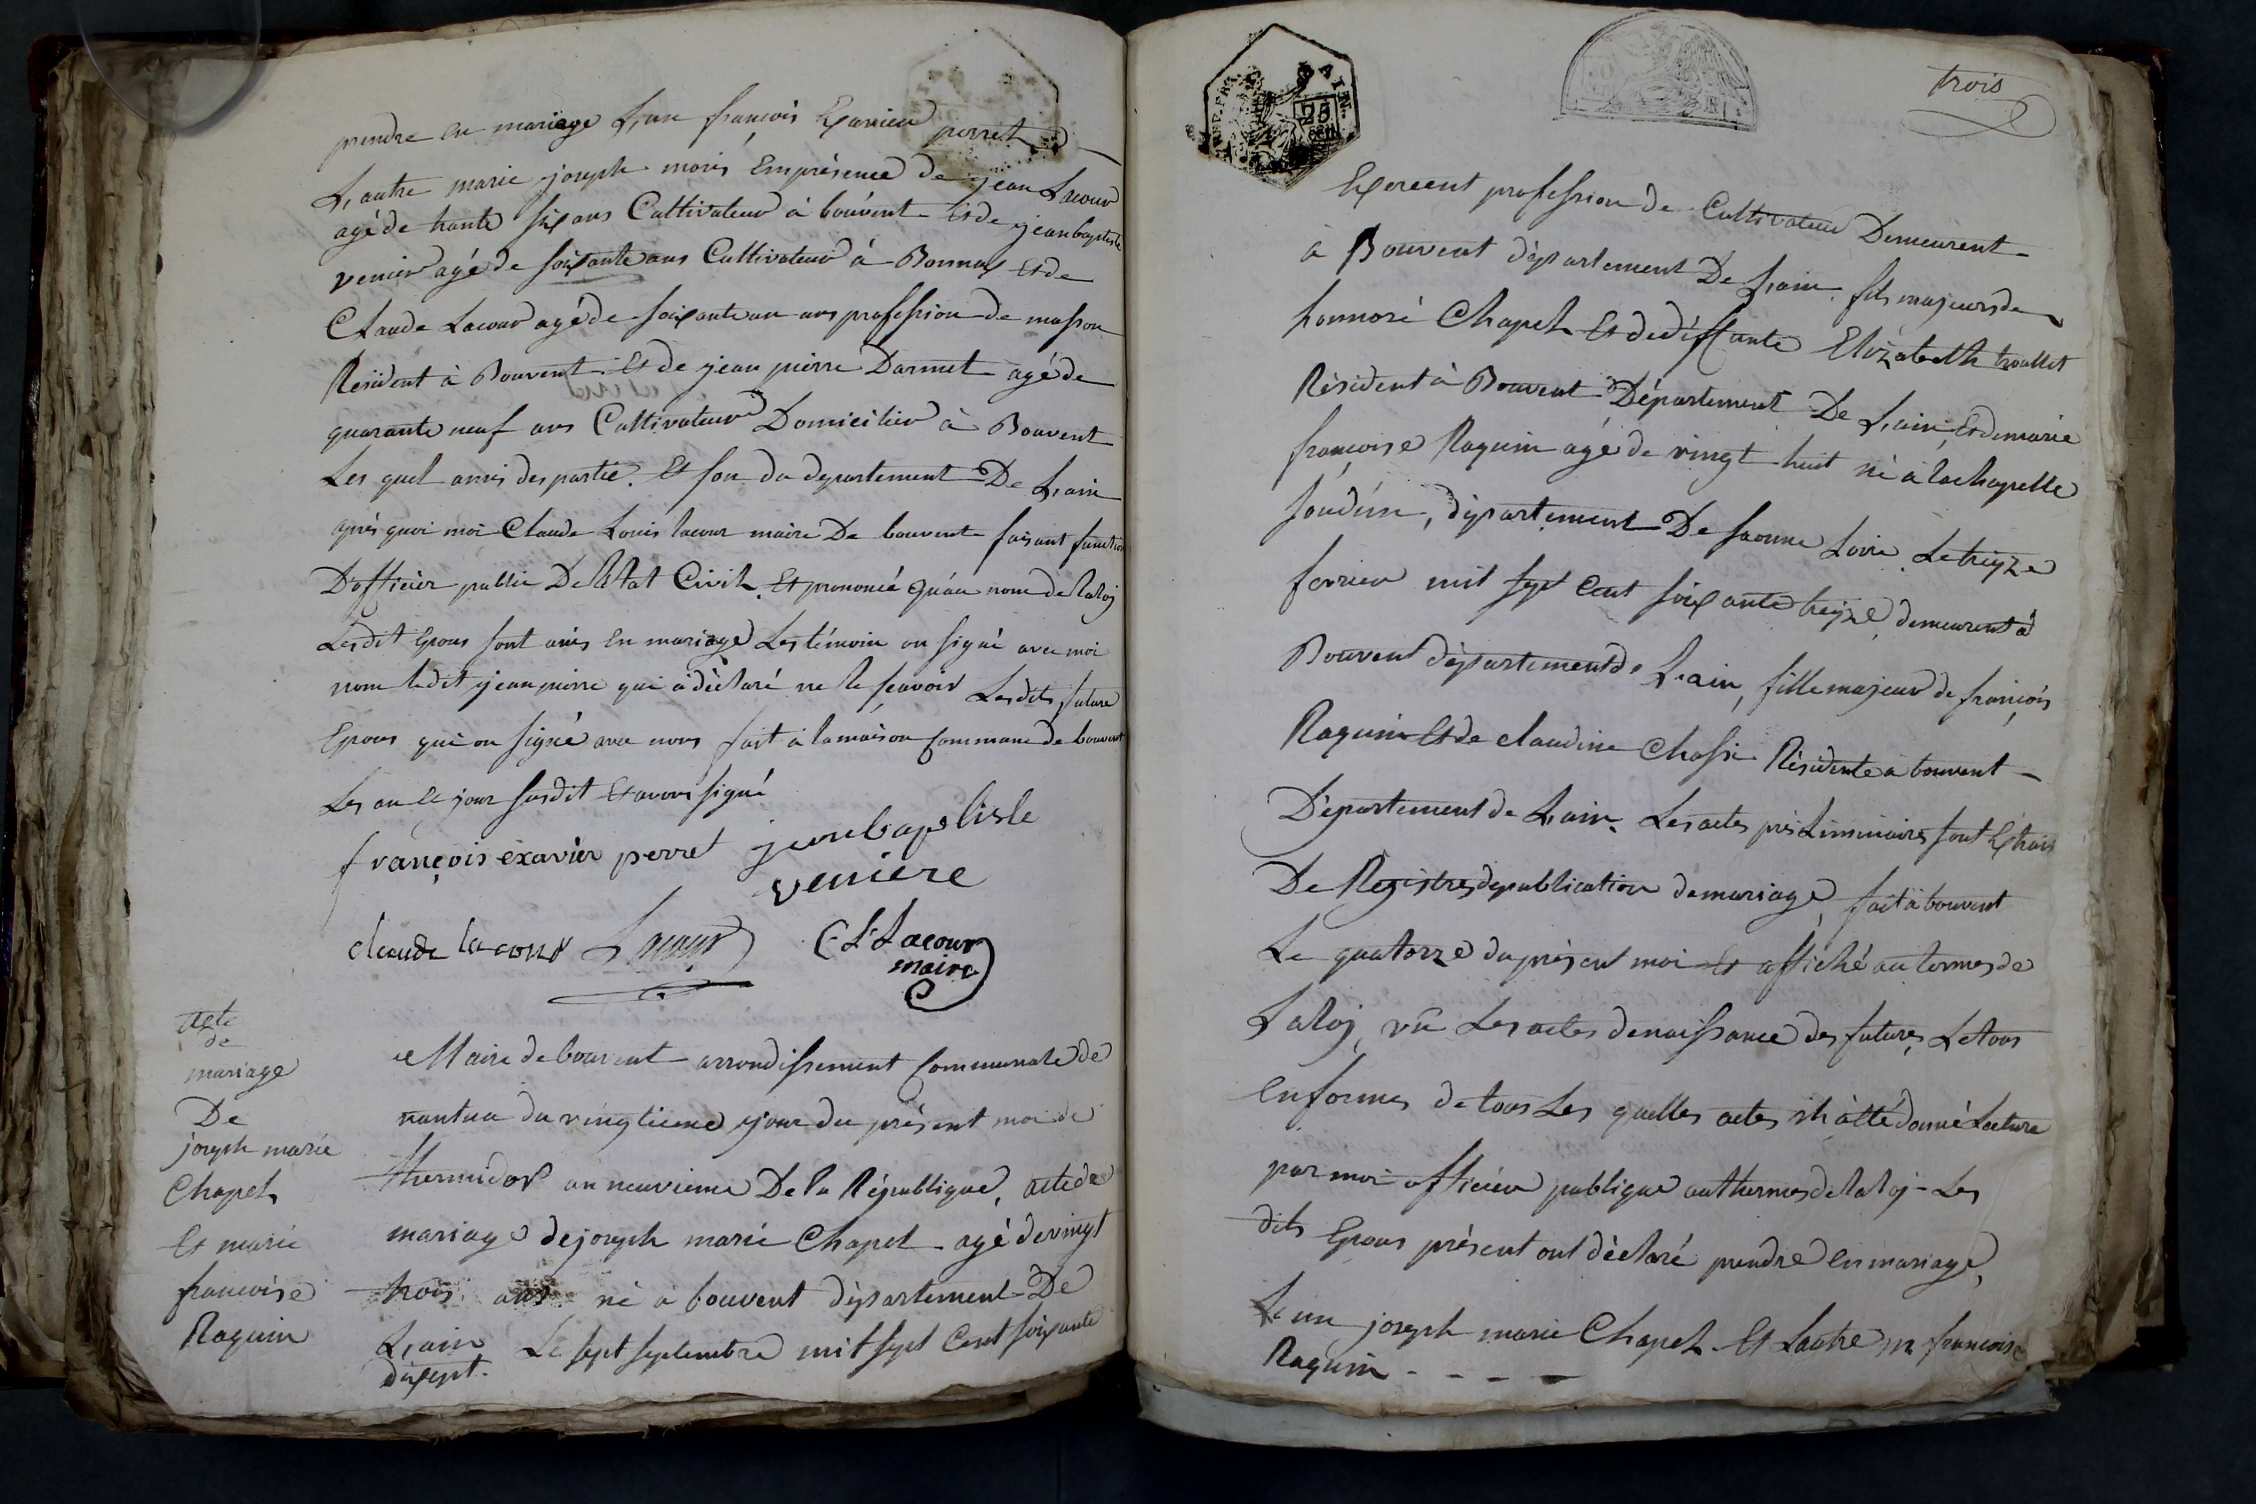 prendre en mariage L,un françois Exavier perret
L,autre marie joseph moris Emprésence de jean Lacour
agé de trante six ans Cultivateur à bouvent et de jean baptiste
venier agé de soixante ans Cultivateur à Bonnax et de
Claude Lacour agé de soixante un ans profession de masson
Resident à Bouvent Et de jean pierre Darmet agé de
quarante neuf ans Cultivateur Domicilier à Bouvent
Les quel amis des partie. Et son du departement De L,ain
après quoi moi Claude Louis lacour maire De bouvent faisant function
D'officier public De L'état Civil. Et prononcé qu'au nom de la loj
Lesdit Epous sont unis En mariage Les témoin on signé avec moi
nom ledit jean pierre qui a déclaré ne le scavoir Lesdits future
Epous qui on signée avec nous fait à la maison commune de bouvent
Les an Et jour susdit Et avons signé
françois exavier perret jean baptiste
veniere
claude lacour Lacour C L Lacour
maire
acte
de
mariage
De
joseph marie
Chapel
Et marie
francoise
Raquin
Maire de bouvent arrondissement Communale de
nantua du vingtieme jour du présent moi de
thermidor an neuvieme De la République, acte de
mariage de joseph marie Chapel agé de vingt
trois ans né a bouvent département De
L,ain Le sept septembre mil sept Cent soixante
dixsept.
AIN
25
trois
Exercent profession de Cultivateur Demeurent
à Bouvent département De L,ain fils majeurs de
honnoré Chapel Et de déffante Elizabeth troullet
Résident à Bouvent Département De L,ain, Et de marie
françoise Raquin agé de vingt huit né à la chapelle
département De saonne Loire Le treize
fevrier mil sept Cent soixante treize, demeurent à
Bouvent département de L,ain, fille majeur de françois
Raquin Et de claudine Chassi Résidente à bouvent
Département de L,ain. Les actes préliminaires sont Extrais
De Registres de publication de mariage, fait à bouvent
Le quatorze du présent moi Et affiché au termes de
La loj, vû Les actes de naissance des futures, Le tous
en formes de tous Les quelles actes il à étté donné Lecture
par moi officier publique au thermes de la loj Les
dits Epous présent ont déclaré prendre en mariage,
L'un joseph marie Chapel Et Lautre m francoise
Raquin - - - -